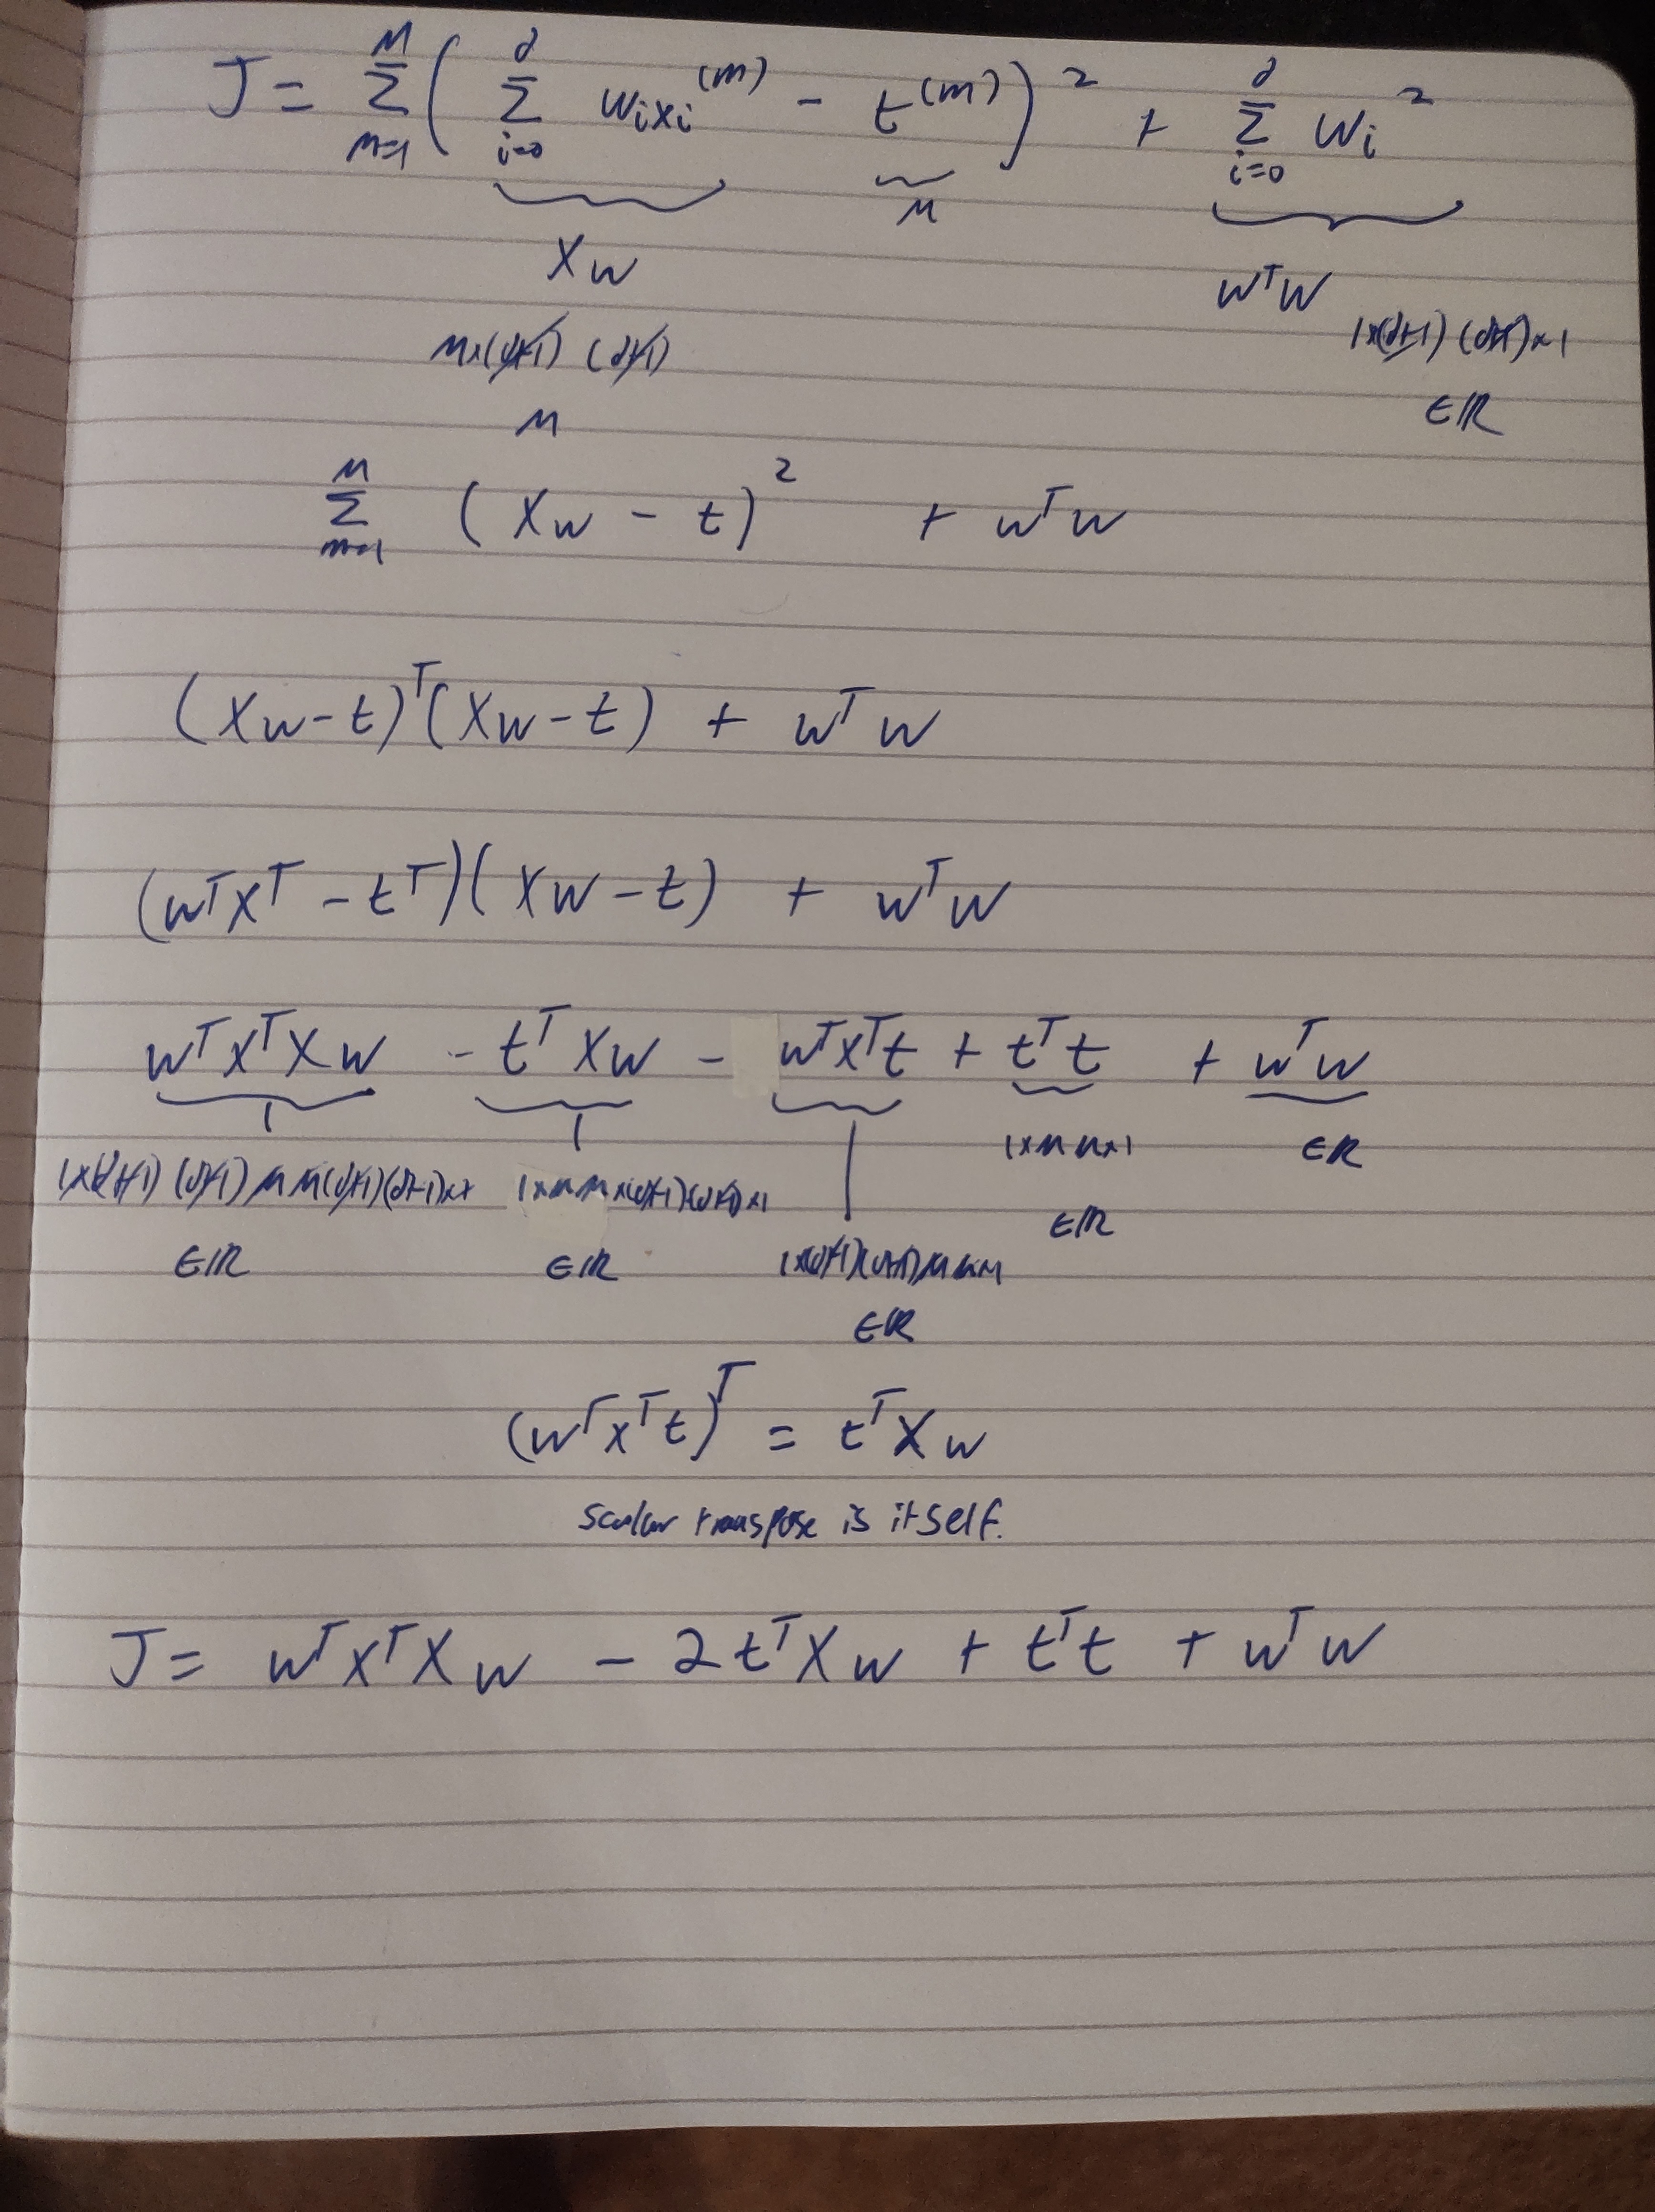 J = M Σ m=1 ( d Σ i=0 wixi(m) - t(m) )2 + d Σ i=0 wi2
M
Xw
wTw
M×(d+1) (d+1)
1×(d+1) (d+1)×1
M
∈ℝ
M Σ m=1 (Xw - t)2 + wTw
(Xw-t)T(Xw-t) + wTw
(wTXT - tT)(Xw-t) + wTw
wTXTXw - tTXw - wTXTt + tTt + wTw
1×M M×1
∈ℝ
1×M M×(d+1)(d+1)×1
∈ℝ
∈ℝ
∈ℝ
∈ℝ
(wTXTt)T = tTXw
scalar transpose is itself.
J = wTXTXw - 2tTXw + tTt + wTw